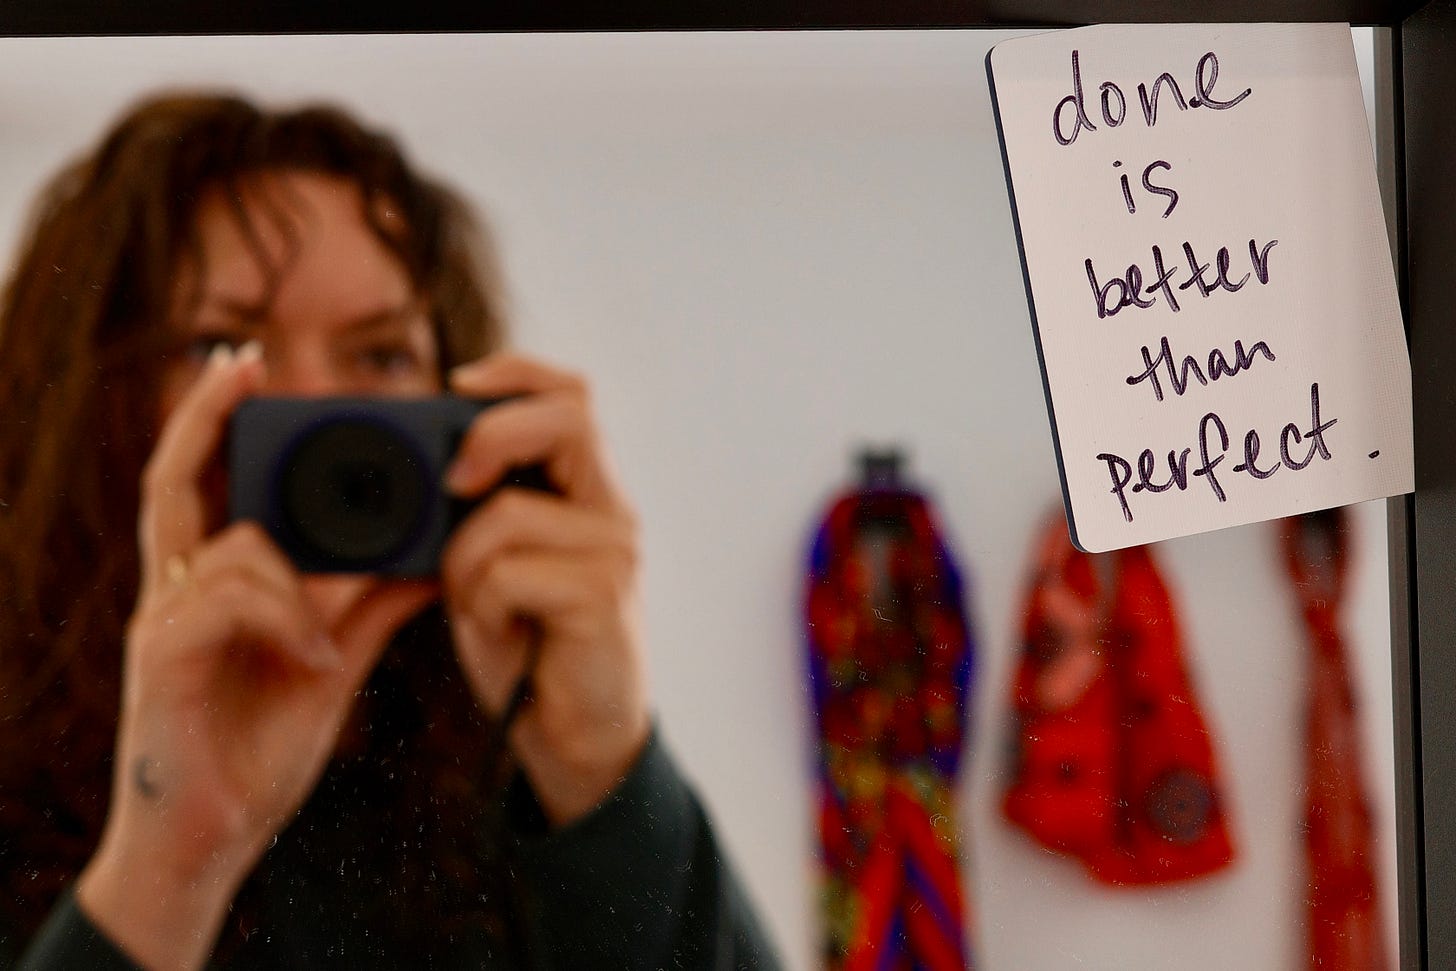 done
is
better
than
perfect.